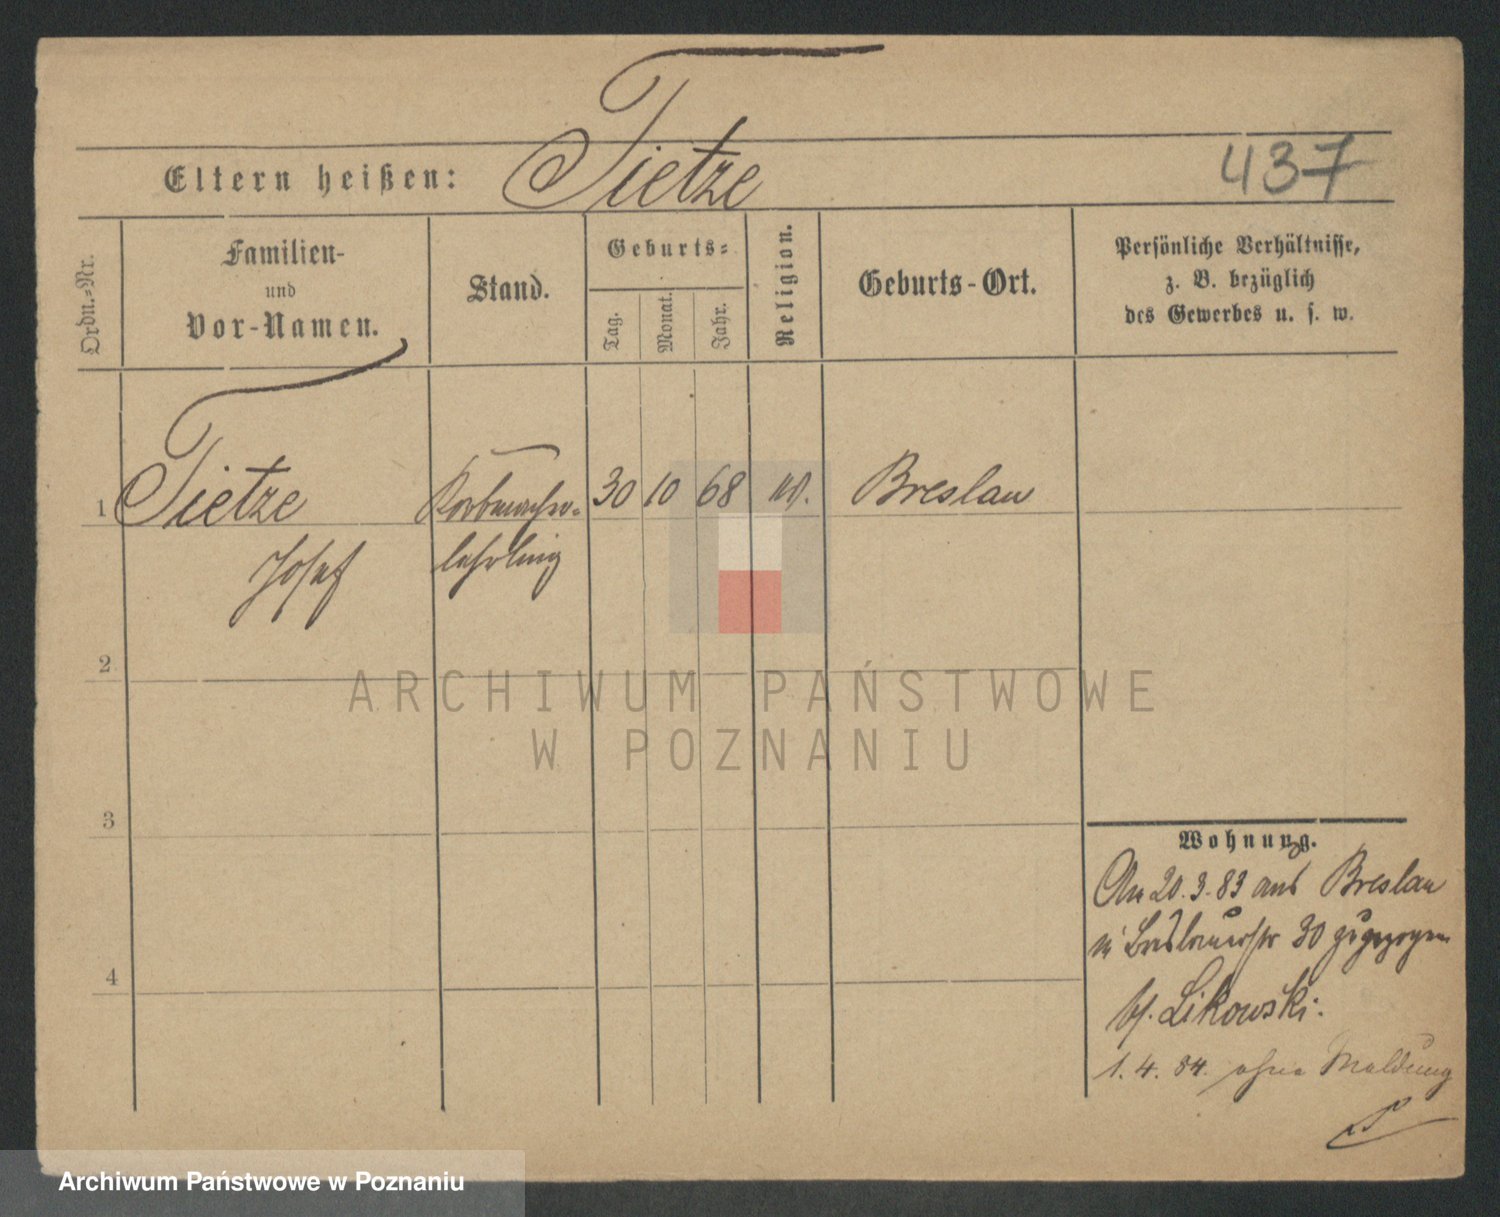 Eltern heißen: Tietze
437
Ordn.-Nr.
Familien-
und
Vor-Namen.
Stand.
Geburts-
Tag.
Monat.
Jahr.
Religion.
Geburts-Ort.
Persönliche Verhältnisse,
z. B. bezüglich
des Gewerbes u. s. w.
1 Tietze Korbmacher- 30 10 68 Breslau
Josef lehrling
2
ARCHIWUM PAŃSTWOWE
W POZNANIU
3
4
Wohnung.
20.3.83 aus Breslau
Breslauerstr 30 zugezogen
Likowski.
1.4.84. ohne Meldung
Archiwum Państwowe w Poznaniu